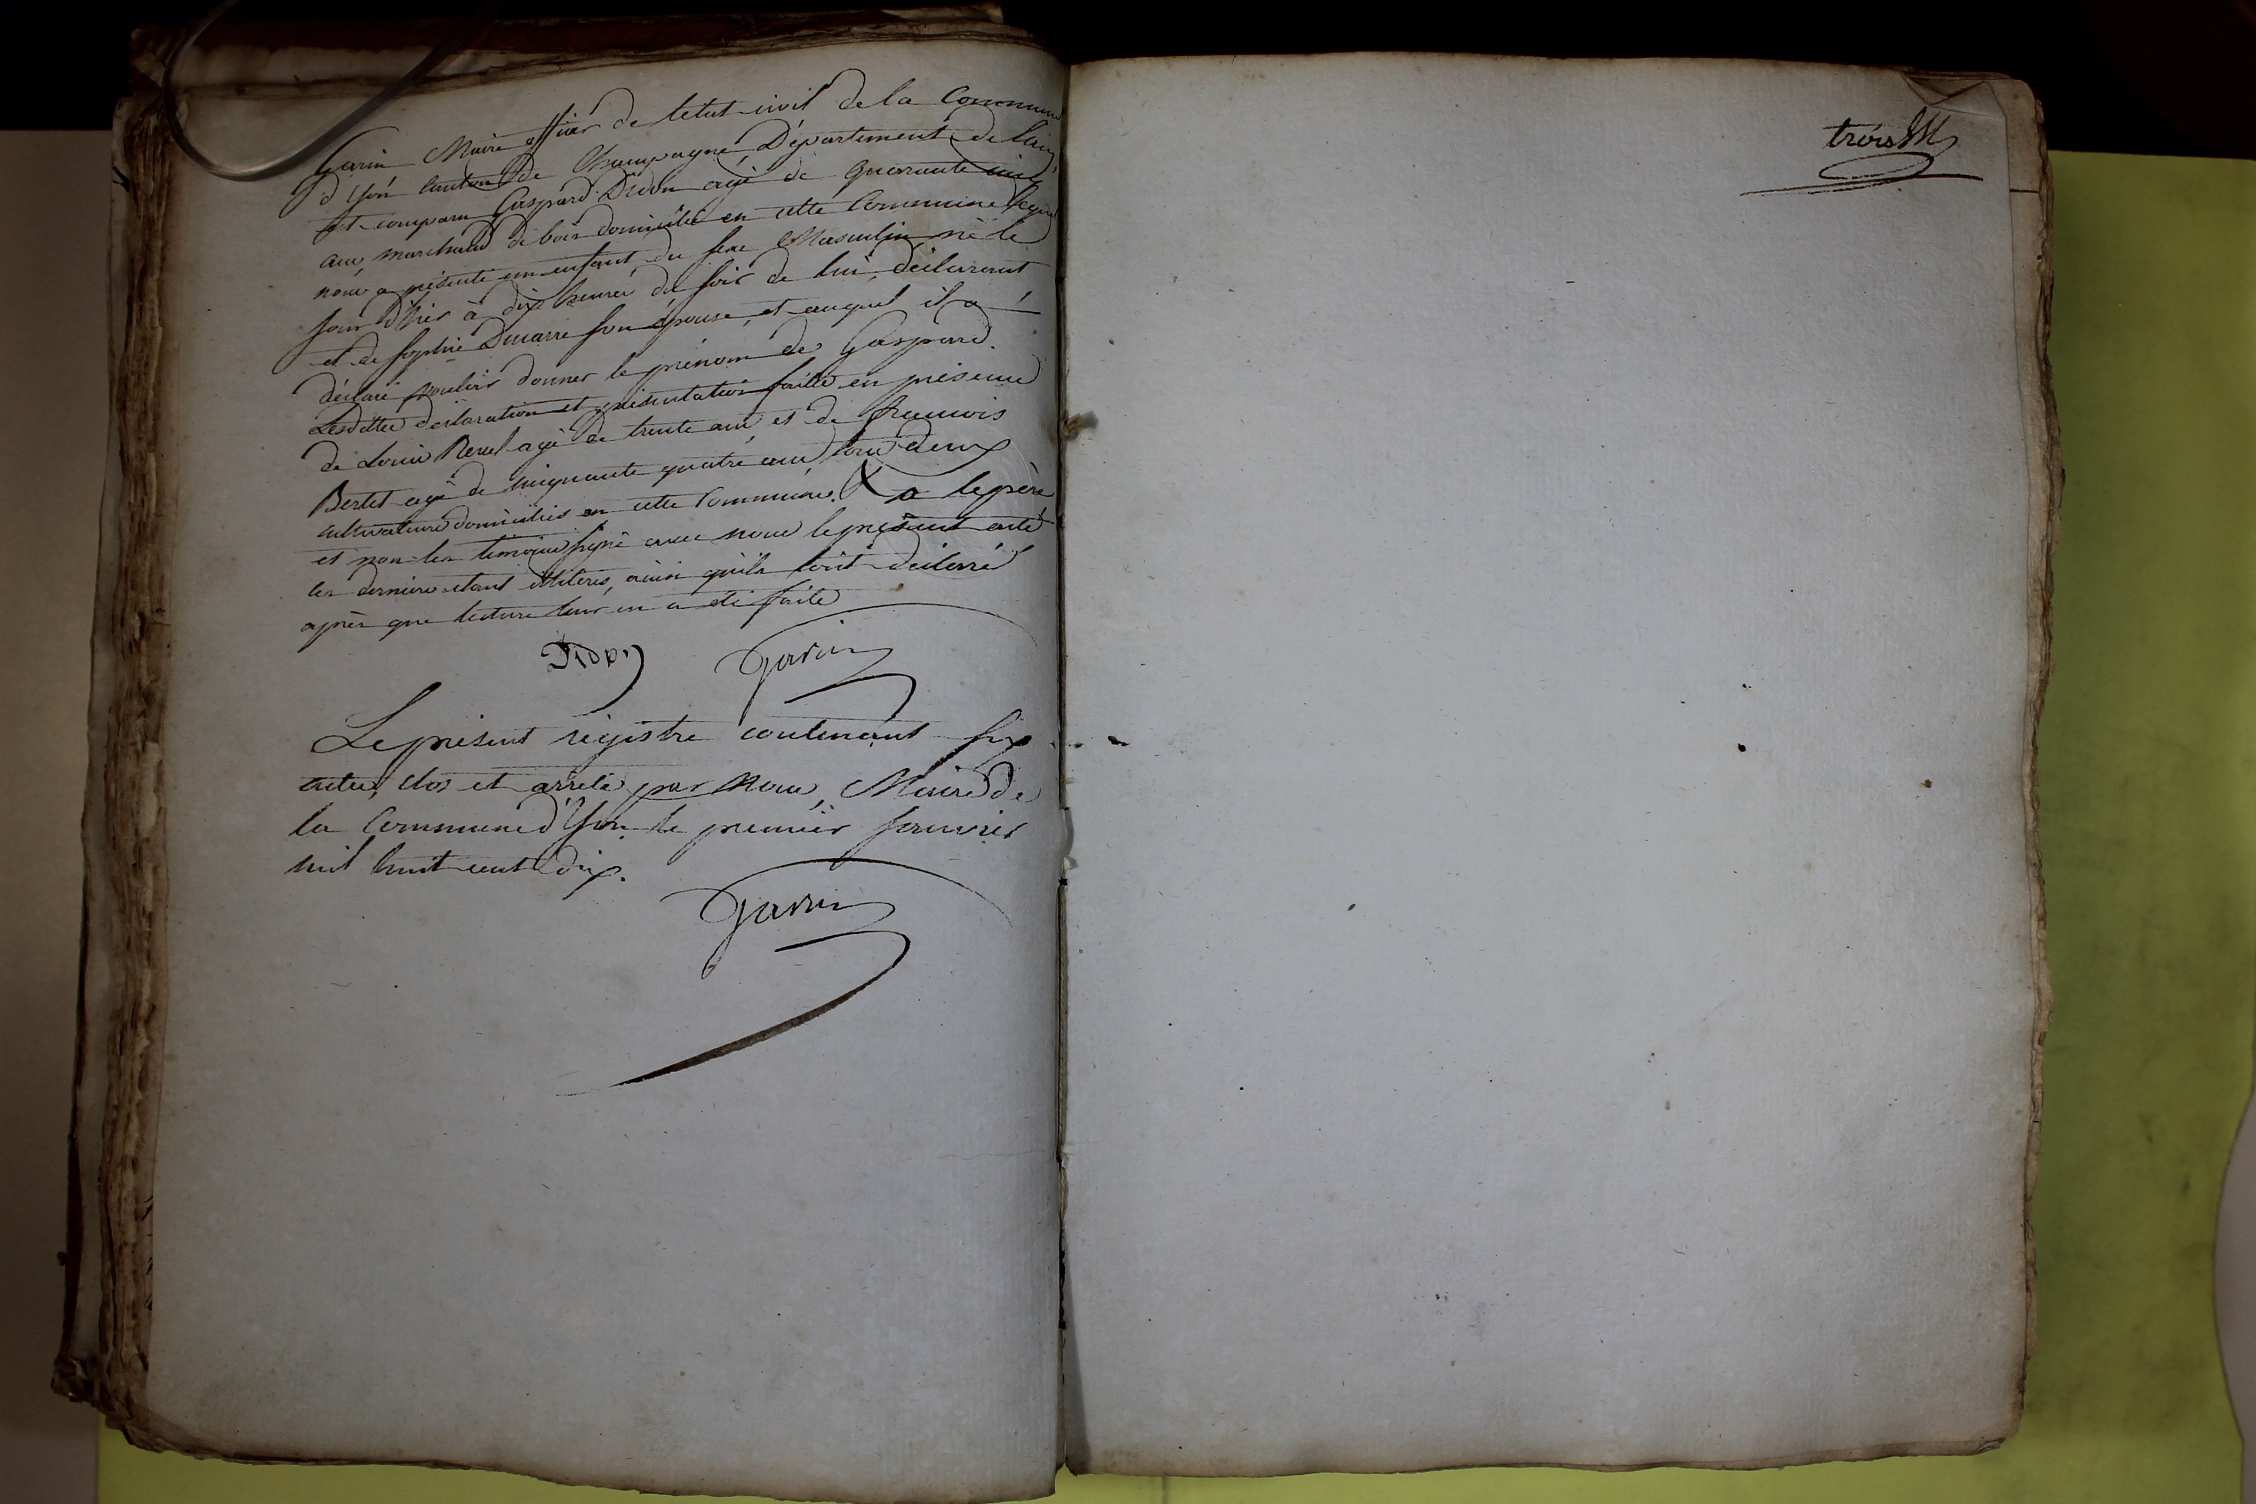 Garin Maire officier de letat civil de la Commune
d'Yon Canton de Champagne, Département de l'ain,
Est comparu Gaspard Didon agé de quarante cinq
ans, marchand de bois domicilié en cette Commune lequel
nous a présenté un enfant du sexe Masculin, né le
jour d'hier à dix heures du soir de lui, déclarant
et de Sophie Ducarre son épouse, et auquel il a
déclaré vouloir donner le prénom de Gaspard.
Lesdittes déclaration et présentation faites en présence
de Louis Revel agé de trente ans, et de francois
Bertet agé de cinquante quatre ans tous deux
cultivateurs domiciliés en cette Commune. & a le père
et non les témoins signé avec nous le présent acte
les derniers étant illitérés, ainsi qu'ils l'ont déclaré
après que lecture leur en a été faite
Didon Garin
Le présent régistre contenant six
actes, clos et arrêté par Nous, Maire de
la Commune d'Yon le premier janvier
mil huit cent dix.
Garin
trois